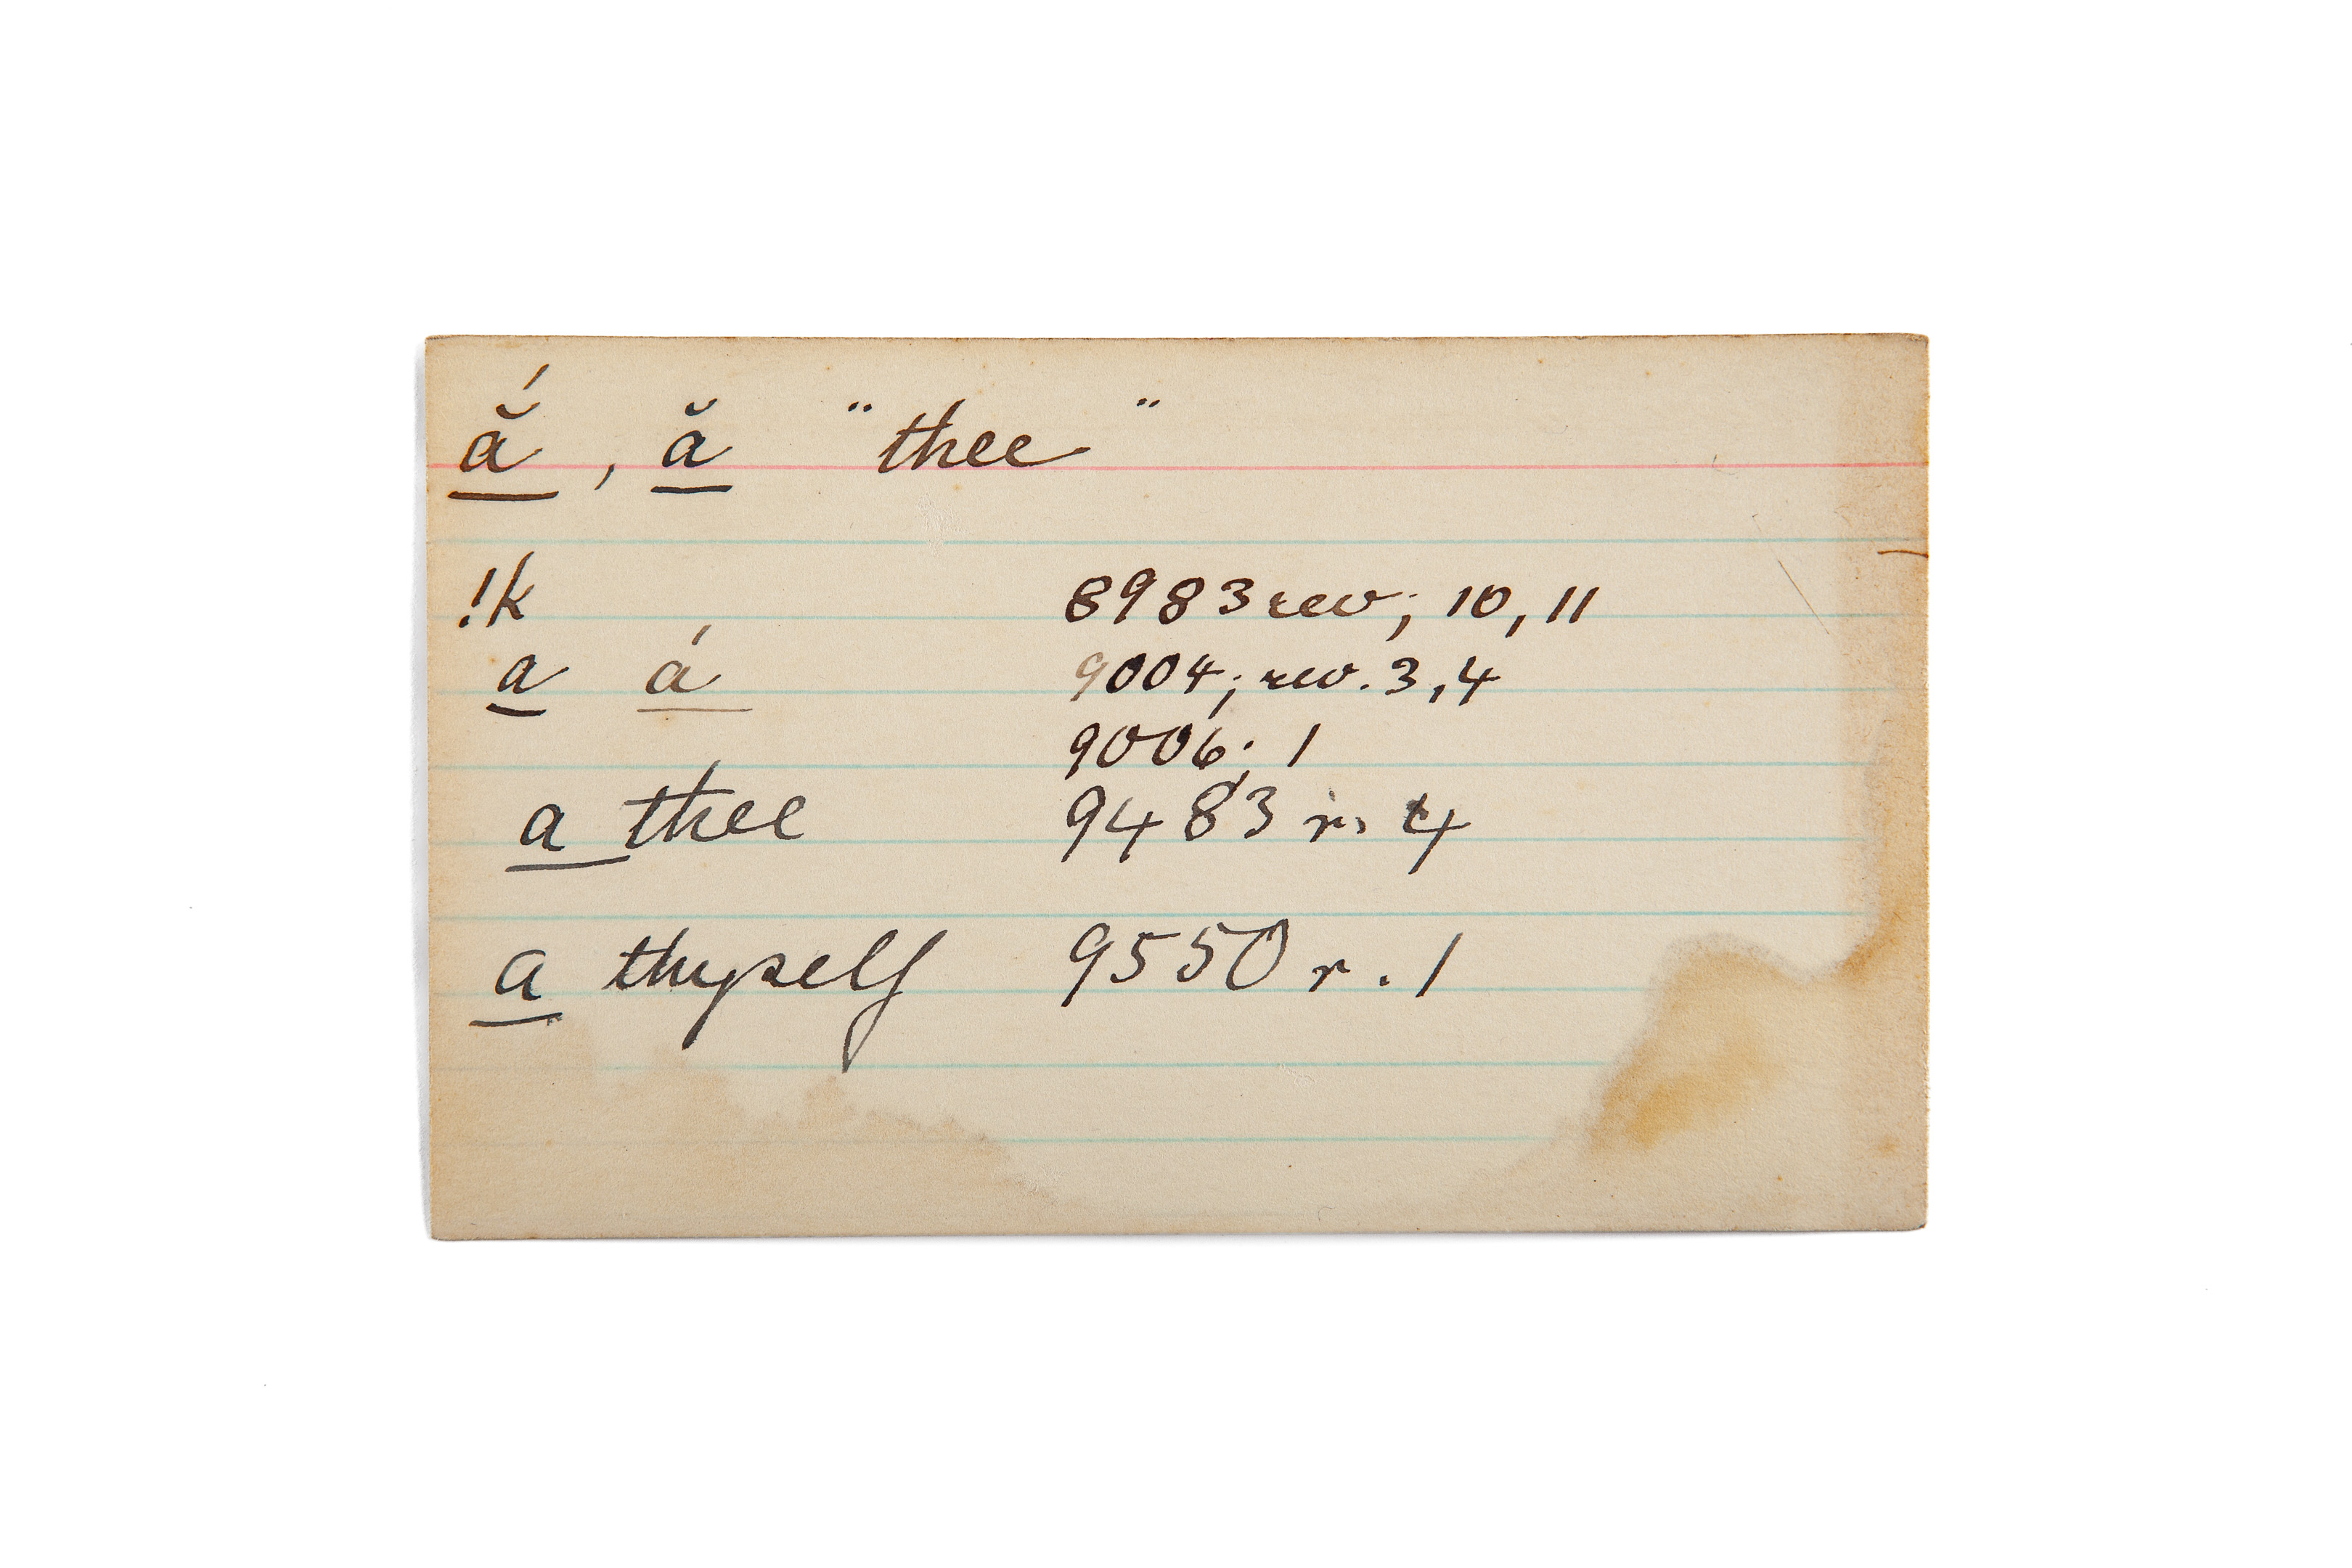 ắ, ă "thee"
!k 8983 rev; 10, 11
a á 9004; rev. 3, 4
9006; 1
a thee 9483 r. 4
a thyself 9550 r. 1